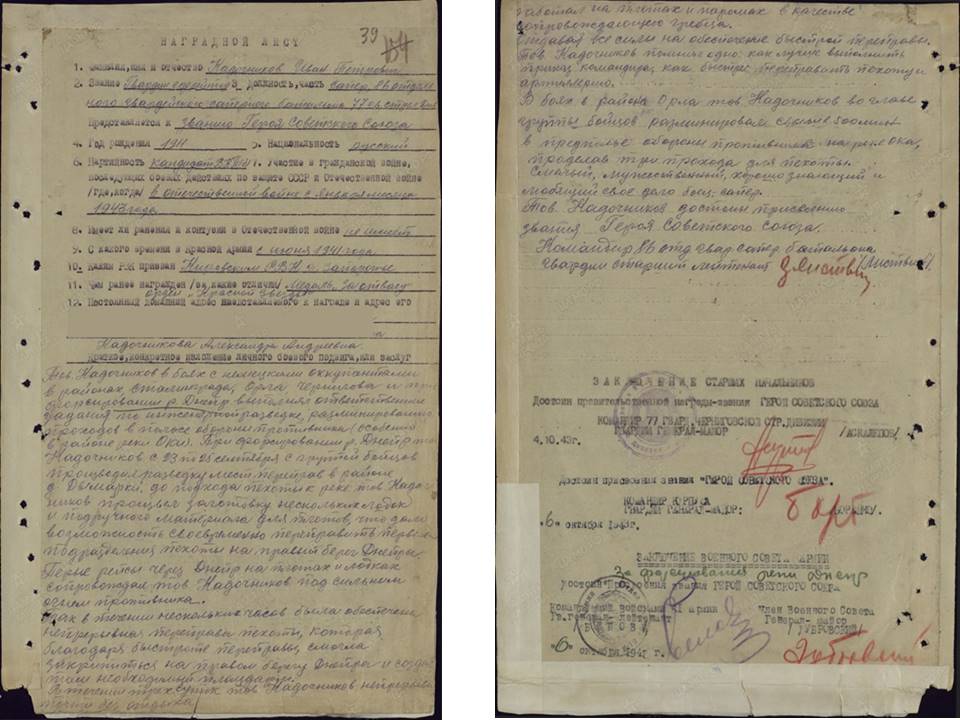 39
НАГРАДНОЙ ЛИСТ
1. Фамилия, имя и отчество Надочников Иван Петрович
2. Звание Гвардии ефрейтор 3. Должность, часть сапер 86 отдель
ного гвардейского саперного батальона 77 гв. стр. див.
Представляется к званию Героя Советского Союза
4. Год рождения 1911 5. Национальность русский
6. Партийность кандидат ВКП(б) 7. Участие в гражданской войне,
последующих боевых действиях по защите СССР и Отечественной войне
/где, когда/ в отечественной войне с января месяца
1943 года
8. Имеет ли ранения и контузии в Отечественной войне не имеет
9. С какого времени в Красной Армии с июня 1941 года.
10. Каким РВК призван РВК г. Запорожье
11. Чем ранее награжден /за какие отличия/ Медаль "За отвагу"
орден "Красной звезды"
12. Постоянный домашний адрес представляемого к награде и адрес его
Надочникова Александра Андреевна
Краткое, конкретное изложение личного боевого подвига, или заслуг
Тов. Надочников в боях с немецкими оккупантами
в районах Сталинграда, Орла Чернигова и при
форсировании р. Днепр выполнял ответственные
задания по инженерной разведке, разминированию
проходов в полосе обороны противника (особенно
в районе реки Ока). При форсировании р. Днепр тов.
Надочников с 23 по 25 сентября с группой бойцов
производил разведку мест переправ в районе
д. до подхода пехоты к реке тов. Надоч
ников произвел заготовку нескольких лодок
и подручного материала для плотов, что дало
возможность своевременно переправить первые
подразделения пехоты на правый берег Днепра.
Первые рейсы через Днепр на плотах и лодках
сопровождал тов. Надочников под сильным
огнем противника.
в течении нескольких часов была обеспечена
непрерывная переправа пехоты, которая
благодаря быстроте переправы смогла
закрепиться на правом берегу Днепра и создать
там необходимый плацдарм.
В течении трех суток тов. Надочников непрерывно
почти без отдыха
работал на плотах и паромах в качестве
сопровождающего гребца.
Отдавая все силы на обеспечение быстрой переправы.
Тов. Надочников помнил одно: как лучше выполнить
приказ командира, как быстрее переправить пехоту и
артиллерию.
В боях в районе Орла тов. Надочников во главе
группы бойцов разминировал свыше 500 мин
в предполье обороны противника на реке Ока,
проделав три прохода для пехоты.
Смелый, мужественный, хорошо знающий и
любящий свое дело боец-сапер.
Тов. Надочников достоин присвоению
звания Героя Советского Союза.
Командир 86 отд. гвар. сапер. батальона
гвардии старший лейтенант /Листвин/
ЗАКЛЮЧЕНИЕ СТАРШИХ НАЧАЛЬНИКОВ
Достоин правительственной награды-звания ГЕРОЙ СОВЕТСКОГО СОЮЗА
КОМАНДИР 77 ГВАРД. ЧЕРНИГОВСКОЙ СТР. ДИВИЗИИ
ГВАРДИИ ГЕНЕРАЛ-МАЙОР /АСКАЛЕПОВ/
4.10.43г.
Достоин присвоения звания "ГЕРОЙ СОВЕТСКОГО СОЮЗА".
КОМАНДИР КОРПУСА
ГВАРДИИ ГЕНЕРАЛ-МАЙОР:
"6" октября 1943г.
ЗАКЛЮЧЕНИЕ ВОЕННОГО СОВЕТА АРМИИ
За форсирование реки Днепр
достоин присвоения звания ГЕРОЙ СОВЕТСКОГО СОЮЗА
Командующий войсками 61 армии Член Военного Совета
Гв. Генерал-лейтенант Генерал-майор
/БЕЛОВ/ /ДУБРОВСКИЙ/
"6" октября 194 г.